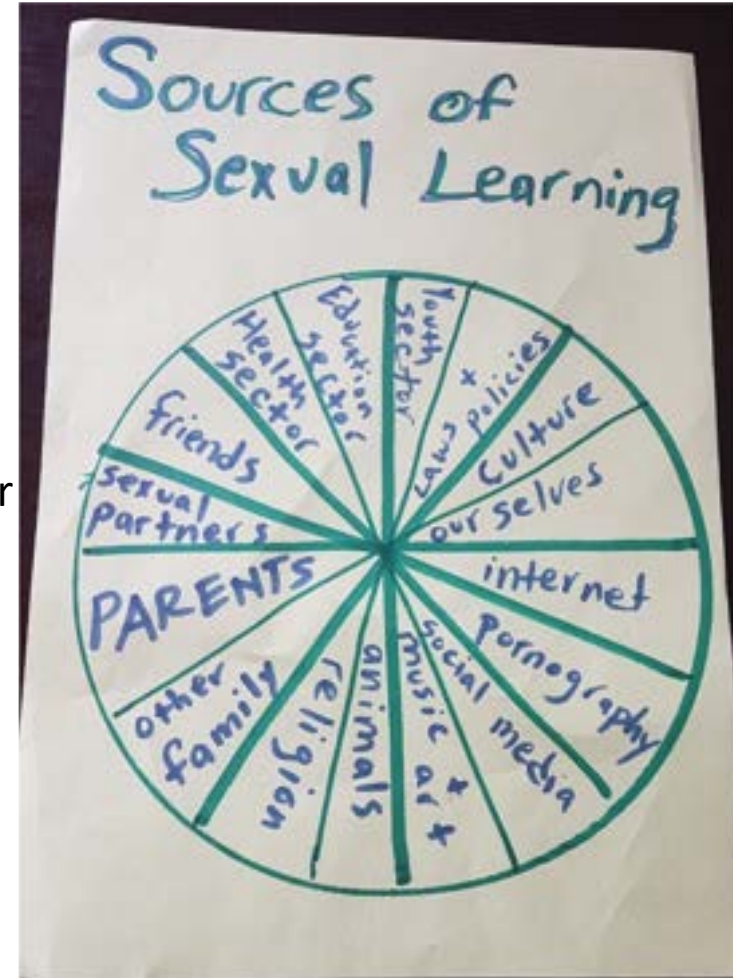 Sources of
Sexual Learning
Youth
sector
Laws +
policies
culture
ourselves
internet
pornography
social media
music +
art
animals
religion
other
family
PARENTS
sexual
partners
friends
Health
sector
Education
sector
r